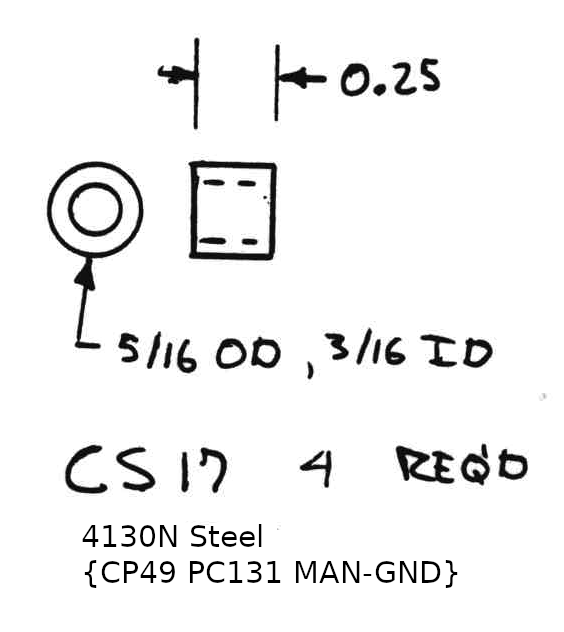 0.25
5/16 OD, 3/16 ID
CS17 4 REQ'D
4130N Steel
{CP49 PC131 MAN-GND}